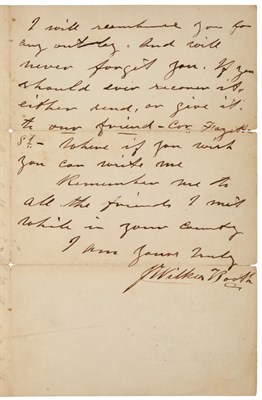 I will reemburse you for
any outlay. And will
never forget you. If you
should ever recover it,
either send, or give it.
to our friend - Cor. Fayette
St. - Where if you wish
you can write me
Remember me to
all the friends I met
while in your country
I am Yours truly
J. Wilkes Booth